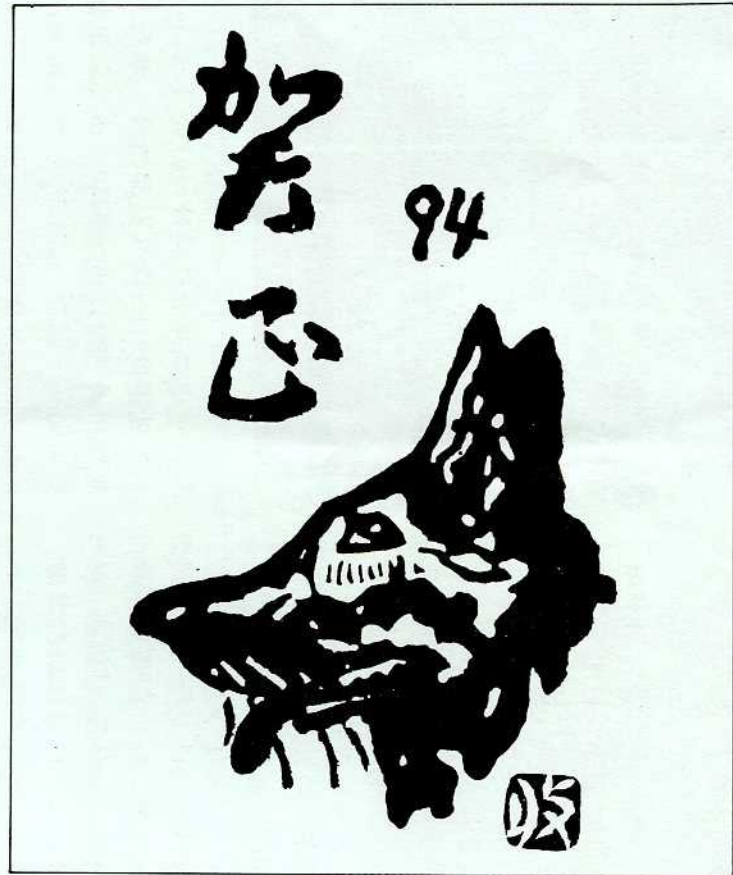 賀正
94